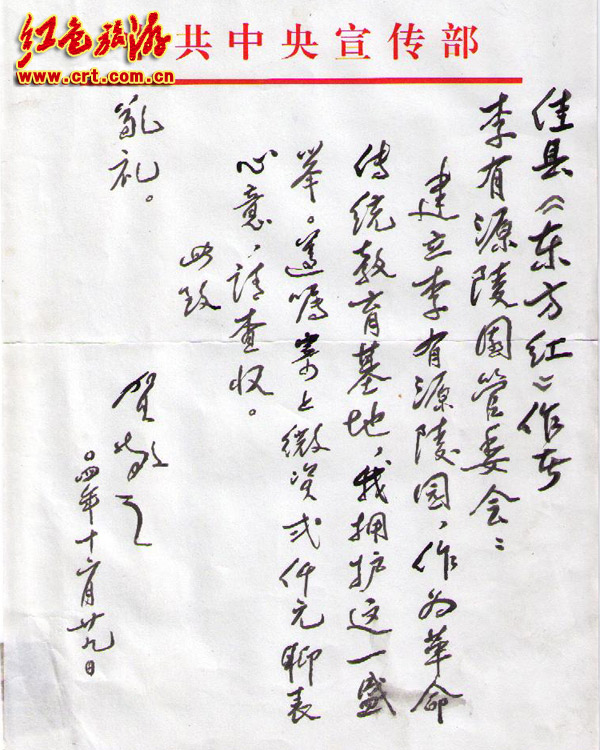 红色旅游
www.crt.com.cn
共中央宣传部
佳县《东方红》作者
李有源陵園管委会：
建立李有源陵园，作为革命
传统教育基地，我拥护这一盛
举。遵嘱寄上微资弍仟元聊表
心意，请查收。
此致
敬礼。
贺敬之
〇四年十二月廿九日